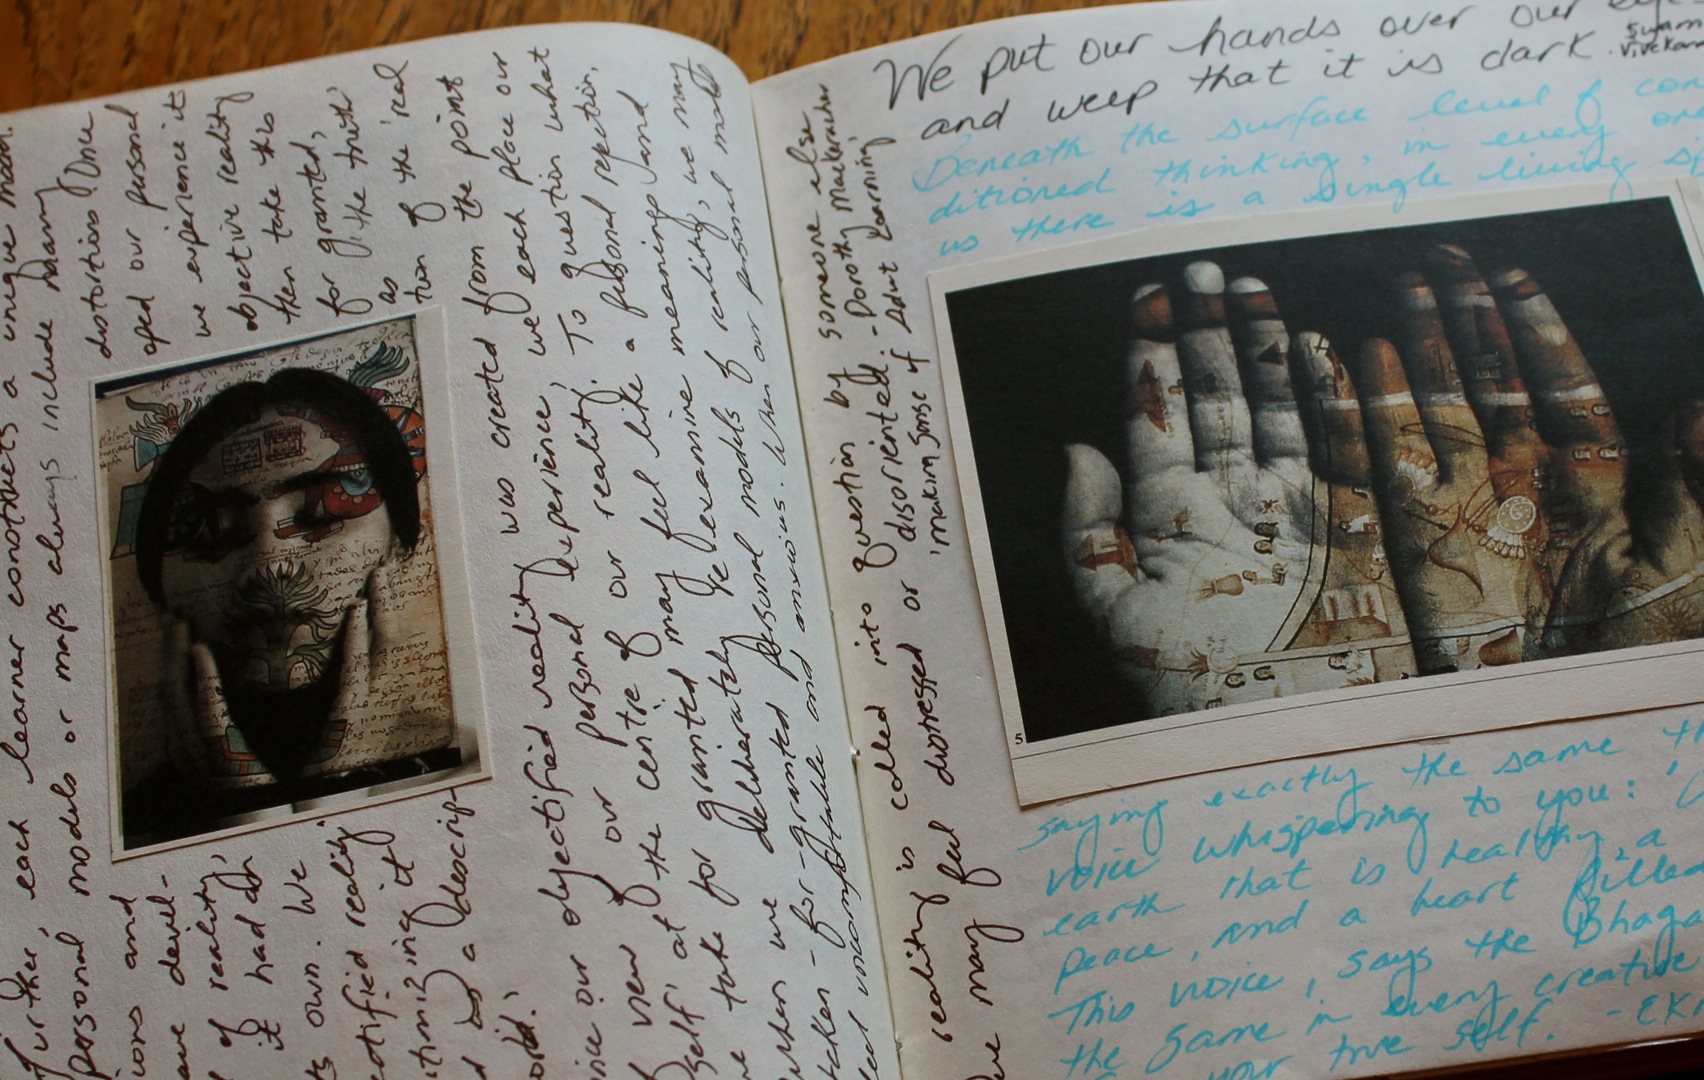 Further, each learner constructs a unique
personal models or maps always include many
and distortions. Once
devel- oped our personal
of reality, we experience it
it had an objective reality
own. We then take this
reality for granted,
it as 'the truth'
a descrip- tion of the 'real
world.'
our objectified reality was created from the point
view of our personal experience, we each place our
'self' at the centre of our reality. To question what
we take for granted may feel like a personal rejection.
when we deliberately examine meanings and
taken-for-granted personal models of reality, we may
feel uncomfortable and anxious. When our personal model
reality is called into question by someone else
we may feel distressed or disoriented. - Dorothy Mackeracher
'making sense of Adult Learning'
We put our hands over our
and weep that it is dark.
Beneath the surface level of con
ditioned thinking, in every one
us there is a single living sp
5
saying exactly the same
voice whispering to you:
earth that is healthy, a
peace, and a heart filled
This voice, says the Bhaga
the same in every creative
your true self. - EK